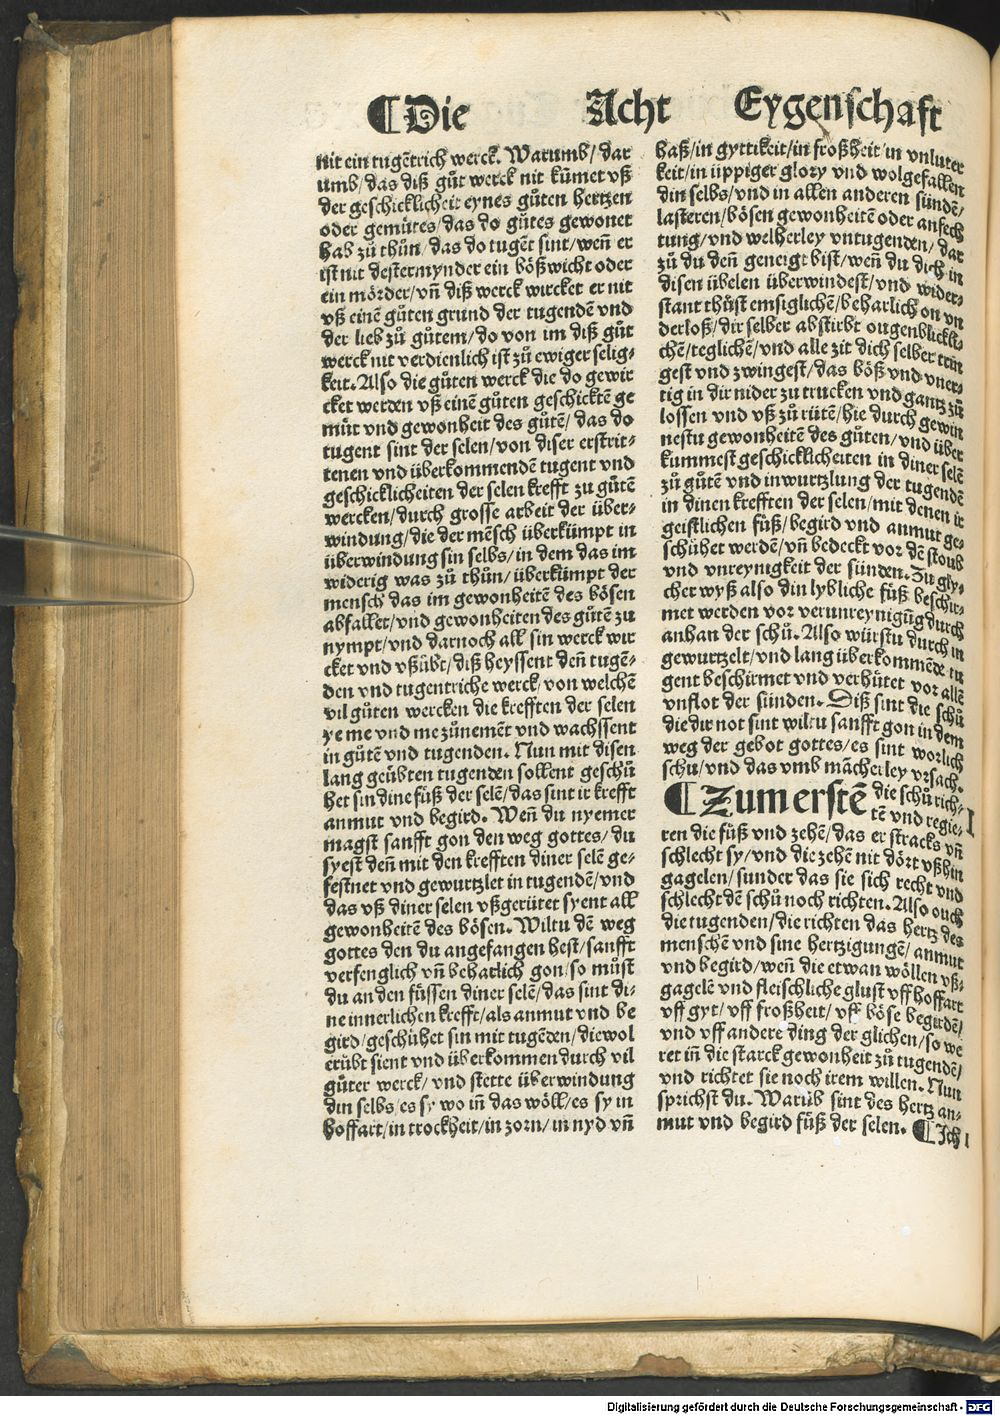 ¶Die Acht Eygenschaft
nit ein tugẽtrich werck. Warumb/dar
umb/das diß gůt werck nit kũmet vß
der geschicklicheit eynes gůten hertzen
oder gemütes/das do gůtes gewonet
hab zů thůn/das do tugẽt sint/weñ er
ist nit destermynder ein bößwicht oder
ein mörder/vñ diß werck wircket er nit
vß einẽ gůten grund der tugendẽ vnd
der lieb zů gůtem/do von im diß gůt
werck nit verdienlich ist zů ewiger selig⸗
keit. Also die gůten werck die do gewir
cket werden vß einẽ gůten geschicktẽ ge
müt vnd gewonheit des gůtẽ/das do
tugent sint der selen/von diser erstrit⸗
tenen vnd überkommendẽ tugent vnd
geschicklicheiten der selen krefft zu gůtẽ
wercken/durch grosse arbeit der über⸗
windung/die der mẽsch überkümpt in
überwindung sin selbs/in dem das im
widerig was zů thůn/überkümpt der
mensch das im gewonheitẽ des bösen
abfallet/vnd gewonheiten des gůtẽ zu
nympt/vnd darnoch all sin werck wir
cket vnd vßůbt/diß heyssent deñ tugẽ⸗
den vnd tugentriche werck/von welchẽ
vil gůten wercken die krefften der selen
ye me vnd me zůnemẽt vnd wachssent
in gůtẽ vnd tugenden. Nun mit disen
lang geübten tugenden sollent geschů
het sin dine füß der selẽ/das sint ir krefft
anmut vnd begird. Weñ du nyemer
magst sanfft gon den weg gottes/du
syest deñ mit den krefften diner selẽ ge⸗
festnet vnd gewurtzlet in tugendẽ/vnd
das vß diner selen vßgerütet syent all
gewonheitẽ des bösen. Wiltu dẽ weg
gottes den du angefangen hest/sanfft
verfenglich vñ beharlich gon/so můst
du an den füssen diner selẽ/das sint di⸗
ne innerlichen krefft/als anmut vnd be
gird/geschühet sin mit tugẽden/diewol
erübt sient vnd überkommen durch vil
gůter werck/vnd stette überwindung
din selbs/es sy wo iñ das wöll/es sy in
hoffart/in trockheit/in zorn/in nyd vñ
haß/in gyttikeit/in froßheit/in vnluter
keit/in üppiger glory vnd wolgefallen
din selbs/vnd in allen anderen sündẽ/
lasteren/bösen gewonheitẽ oder anfech
tung/vnd welherley vntugenden/dar
zů du deñ geneigt bist/weñ du dich in
disen übelen überwindest/vnd wider⸗
stant thůst emsiglichẽ/beharlich on vn
derloß/dir selber abstirbt ougenblickli⸗
chẽ/teglichẽ/vnd alle zit dich selber trin
gest vnd zwingest/das böß vnd vner⸗
tig in dir nider zu trucken vnd gantz zů
lossen vnd vß zů rütẽ/hie durch gewin
nestu gewonheitẽ des gůten/vnd über
kummest geschicklicheiten in diner selẽ
zů gůtẽ vnd inwurtzlung der tugendẽ
in dinen krefften der selen/mit denen ir
geistlichen füß/begird vnd anmut ge⸗
schühet werdẽ/vñ bedeckt vor dẽ stoub
vnd vnreynigkeit der sünden. Zu gly⸗
cher wyß also din lybliche füß beschir⸗
met werden vor verunreynigũg durch
anhan der schů. Also würstu durch in
gewurtzelt/vnd lang überkommẽde tu
gent beschirmet vnd verhütet vor allẽ
vnflot der sünden. Diß sint die schů
die dir not sint wiltu sanfft gon in dem
weg der gebot gottes/es sint worlich
schu/vnd das vmb mãcherley vrsach.
¶Zum erstẽ die schů rich⸗ I
tẽ vnd regie⸗
ren die füß vnd zehẽ/das er stracks vñ
schlecht sy/vnd die zehẽ nit dört vßhin
gagelen/sunder das sie sich recht vnd
schlecht dẽ schů noch richten. Also ouch
die tugenden/die richten das hertz des
menschẽ vnd sine hertzigungẽ/anmut
vnd begird/weñ die etwan wöllen vß⸗
gagelẽ vnd fleischliche glust vff hoffart
vff gyt/vff froßheit/vff böse begirdẽ/
vnd vff andere ding der glichen/so we
ret iñ die starck gewonheit zů tugendẽ/
vnd richtet sie noch irem willen. Nun
sprichst du. Warũb sint des hertz an⸗
mut vnd begird füß der selen. ¶Ich
Digitalisierung gefördert durch die Deutsche Forschungsgemeinschaft - DFG